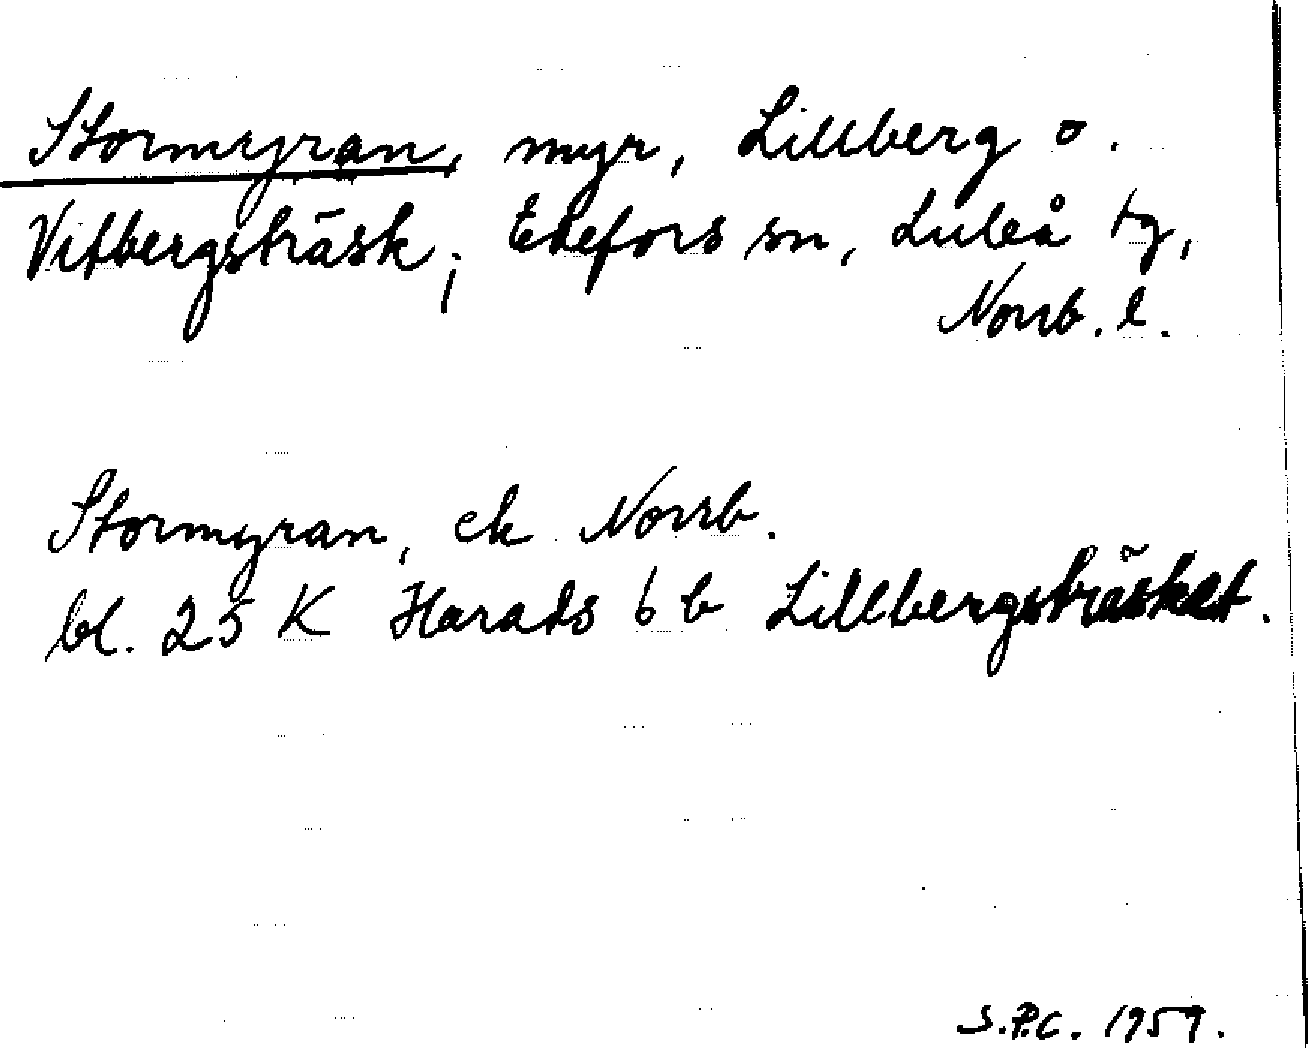 Stormyran, myr, Lillberg o.
Vitbergsträsk; Edefors sn, Luleå tg,
Norrb. l.
Stormyran, ek Norrb.
bl. 25 K Harads 6 b Lillbergsträsket.
S.P.C. 1959.